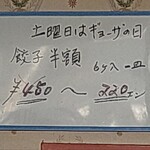 土曜日はギョーザの日
餃子半額 6ケ入一皿
¥450〜220エン